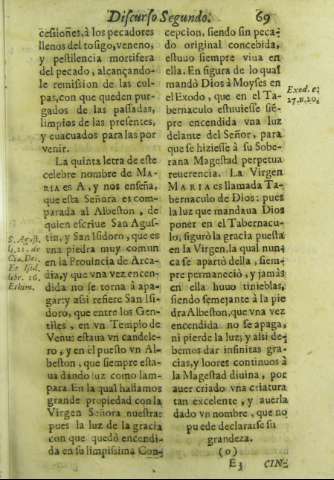 Discurso Segundo. 69
cessiones, à los pecadores
llenos del tosigo, veneno,
y pestilencia mortifera
del pecado, alcançando-
le remission de las cul-
pas, con que queden pur-
gados de las passadas,
limpios de las presentes,
y euacuados para las por
venir.
La quinta letra de este
celebre nombre de MA-
RIA es A, y nos enseña,
que esta Señora es com-
parada al Albeston, de
quien escriue San Agus-
tin, y San Isidoro, que es
una piedra muy comun
en la Prouincia de Arca-
dia, y que vna vez encen-
dida no se torna à apa-
gar: y assi refiere San Isi-
doro, que entre los Gen-
tiles, en vn Templo de
Venus estaua vn candele-
ro, y en el puesto vn Al-
beston, que siempre esta-
ua dando luz como lam-
para. En la qual hallamos
grande propiedad con la
Virgen Señora nuestra:
pues la luz de la gracia
con que quedò encendi-
da en su limpissima Con-
S. Agust.
l. 21. de
Ciu. Dei.
Et Isid.
libr. 16.
cepcion, siendo sin peca-
do original concebida,
estuuo siempre viua en
ella. En figura de lo qual
mandò Dios à Moyses en
el Exodo, que en el Ta-
bernaculo estuuiesse siẽ-
pre encendida vna luz
delante del Señor, para
que se hiziesse à su Sobe-
rana Magestad perpetua
reuerencia. La Virgen
MARIA es llamada Ta-
bernaculo de Dios: pues
la luz que mandaua Dios
poner en el Tabernacu-
lo, figurò la gracia puesta
en la Virgen, la qual nun-
ca se apartò della, siem-
pre permaneciò, y jamàs
en ella huuo tinieblas,
siendo semejante à la pie
dra Albeston, que vna vez
encendida no se apaga,
ni pierde la luz; y assi de-
bemos dar infinitas gra-
cias, y loores continuos à
la Magestad diuina, por
auer criado vna criatura
tan excelente, y auerla
dado vn nombre, que no
puede declararse su
grandeza.
Exod. c.
27. n. 20.
(o)
E3 CIN-